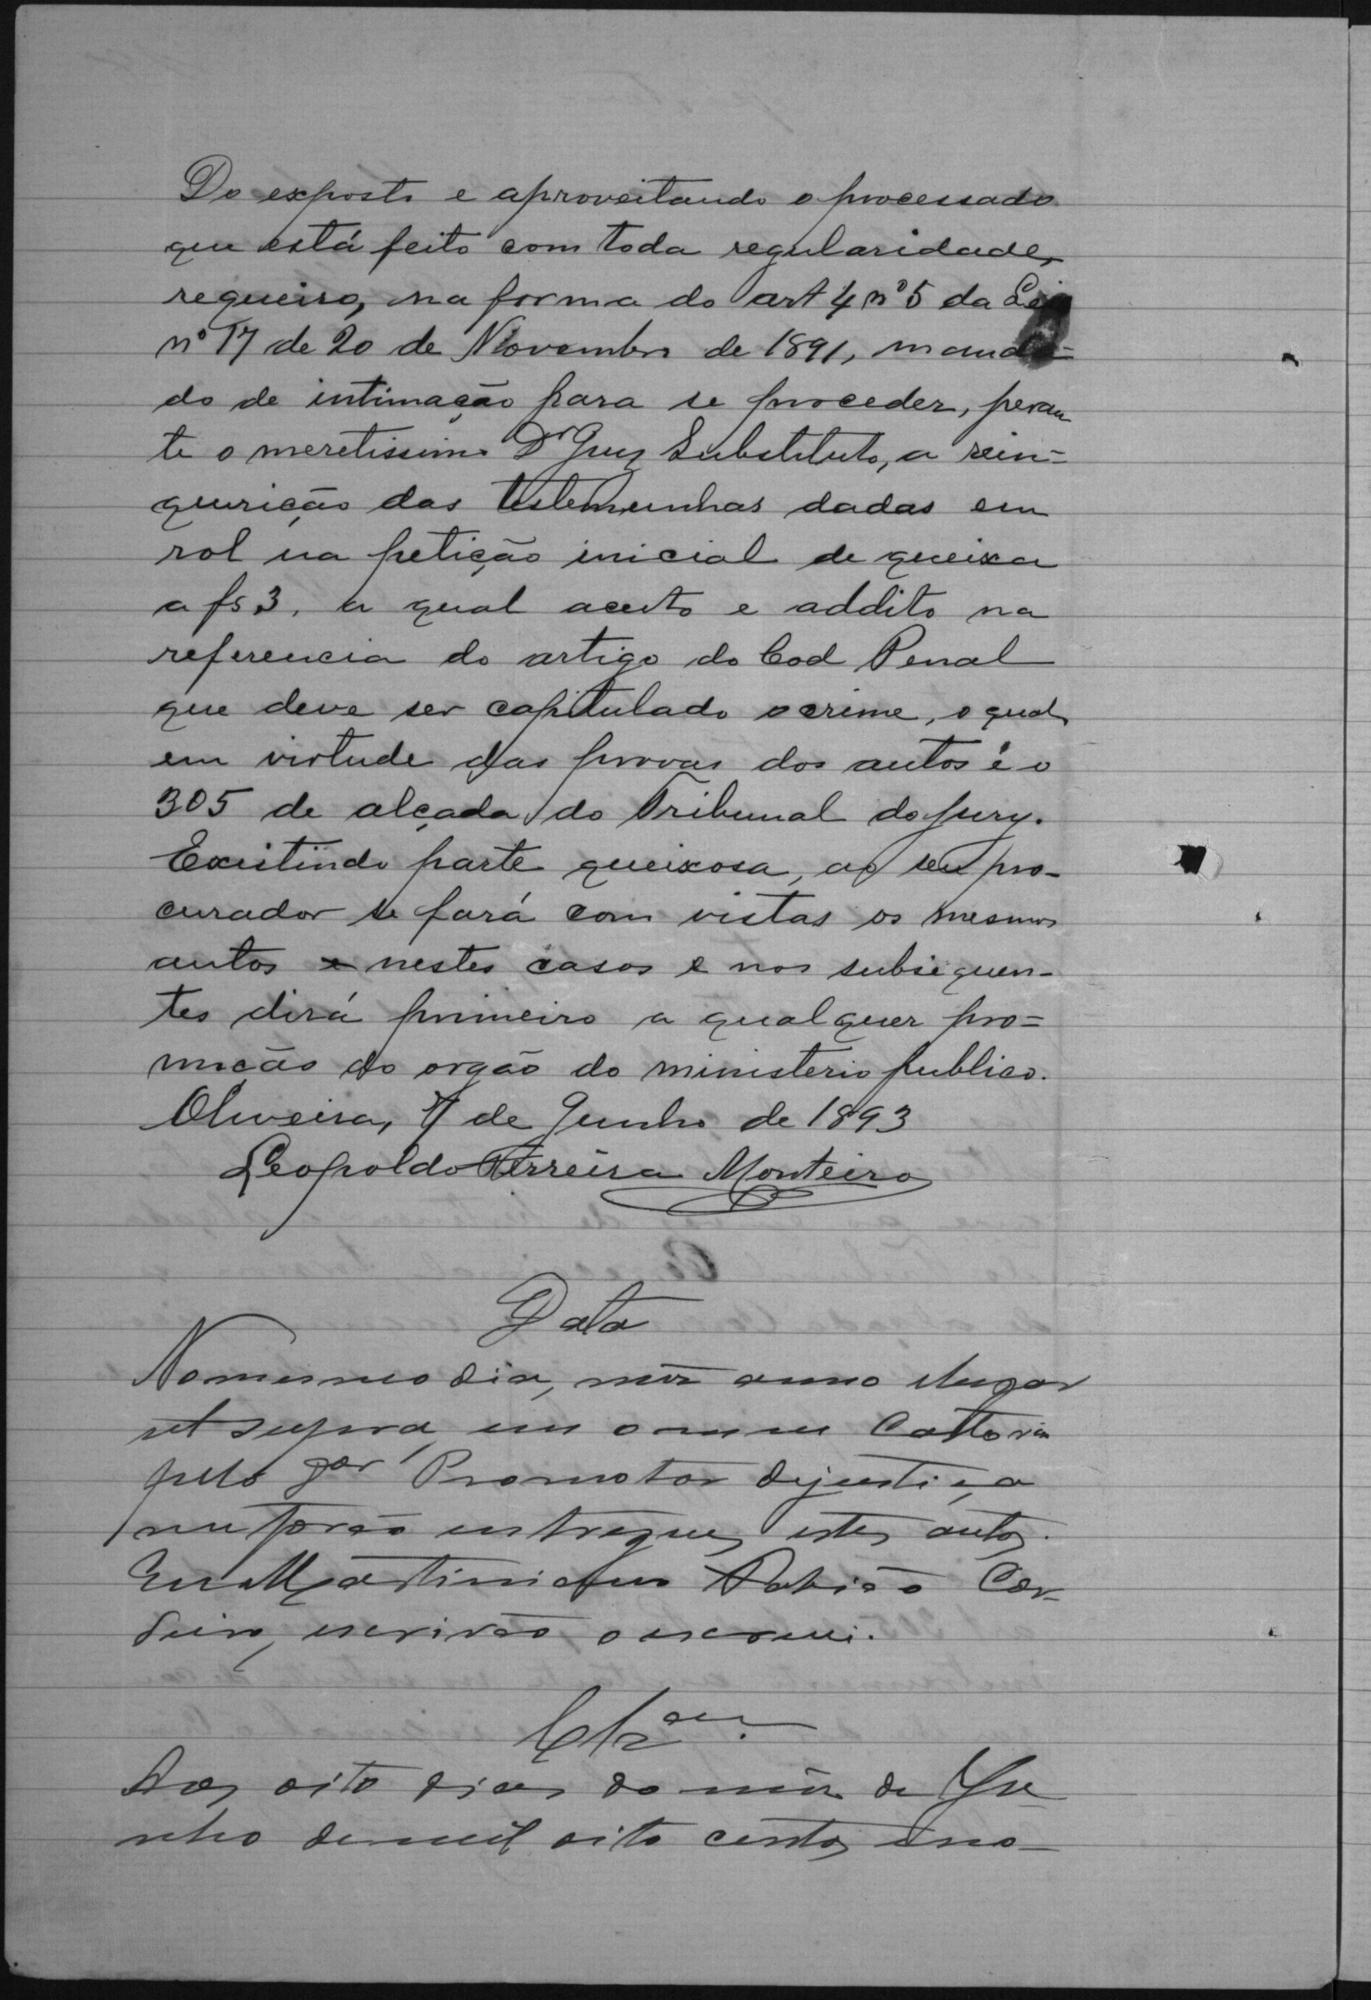 Do exposto e aproveitando o processado
que está feito com toda regularidade,
requeiro, na forma do art 4 nº 5 da Lei
nº 17 de 20 de Novembro de 1891, manda=
do de intimação para se proceder, peran
te o meretissimo Dr Juiz Substituto, a rein=
quirição das testemunhas dadas em
rol na petição inicial de queixa
a fs 3. a qual aceito e addito na
referencia do artigo do Cod Penal
que deve ser capitulado o crime, o qual
em virtude das provas dos autos é o
305 de alçada do Tribunal do Jury.
Existindo parte queixosa, ao seu pro-
curador se fará com vistas os mesmos
autos e nestes casos e nos subsequen-
tes dirá primeiro a qualquer pro=
moção do orgão do ministerio publico.
Oliveira, 7 de Junho de 1893
Leopoldo Ferreira Monteiro
Data
No mesmo dia, mez anno e lugar
ut supra, em o meu Cartorio
pelo Promotor dejustiça
me forão entregues estes autos.
Eu Martiniano Cor-
deiro, escrivão, o escrevi.
Clzam
Aos oito dias do mez de Ju-
nho demil oito centos eno-